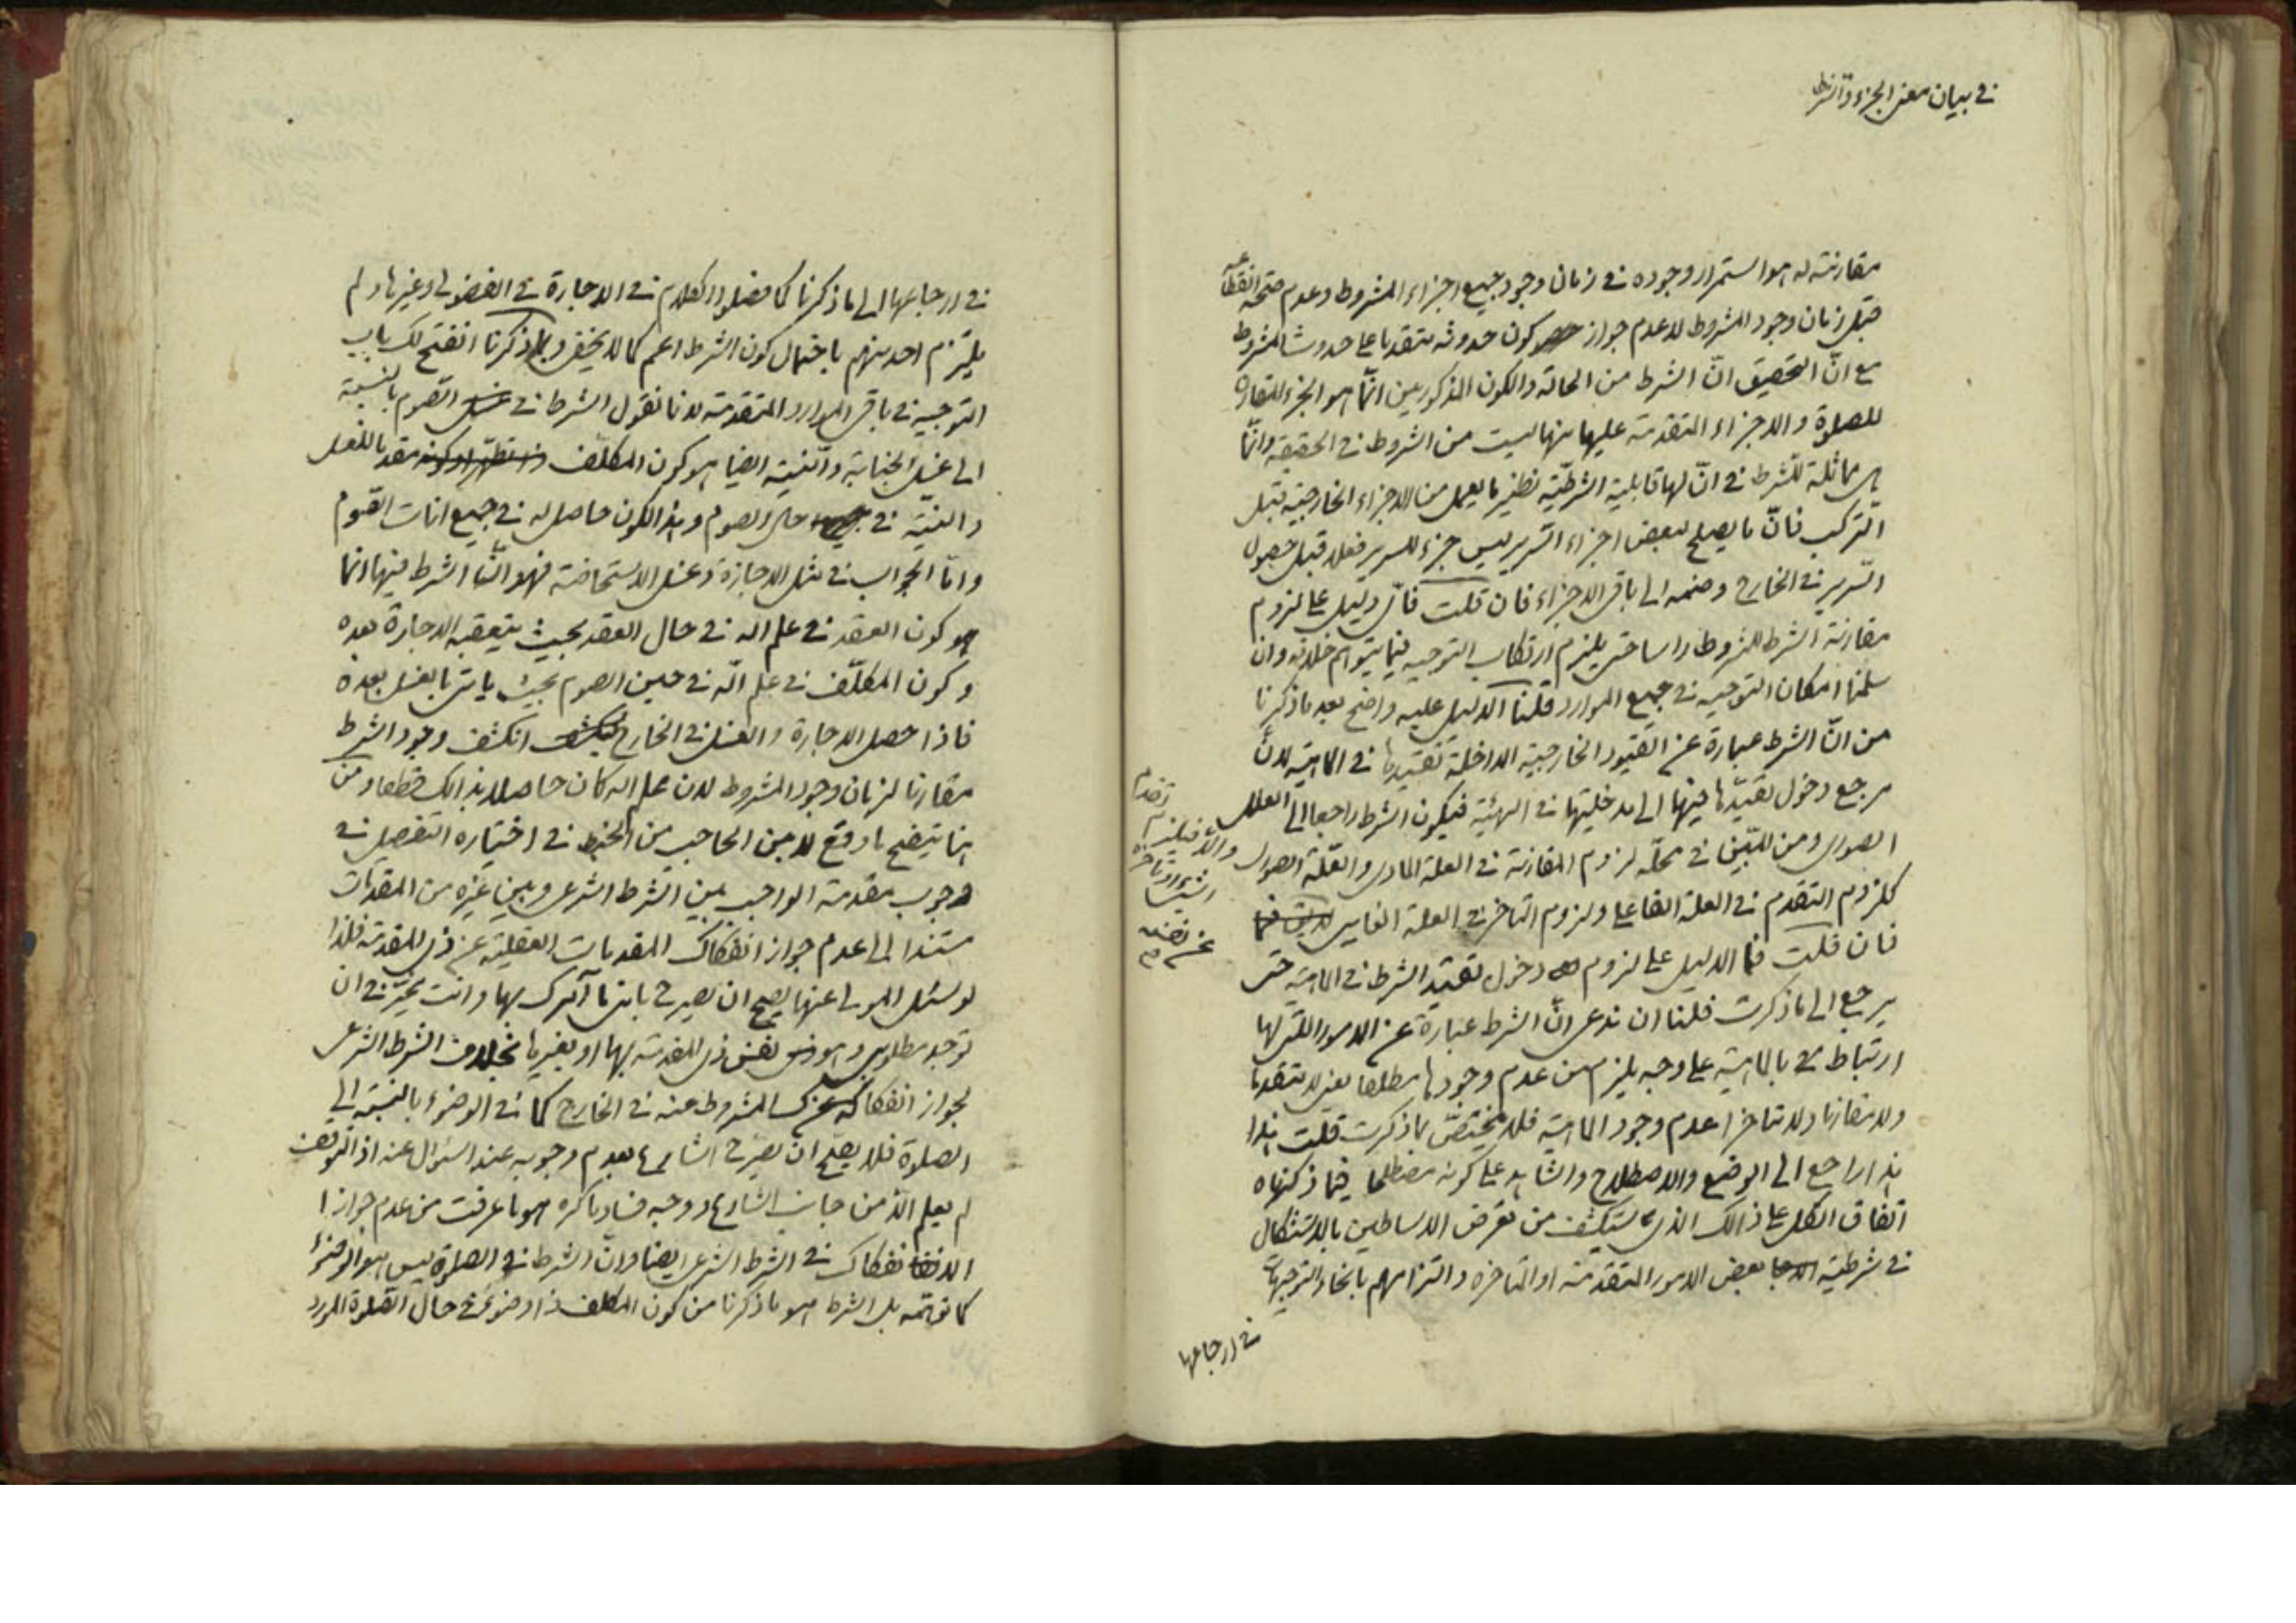 في بيان معنى الجزء والشرط
مقارنته له هو استمرار وجوده في زمان وجود جميع اجزاء المشروط وعدم صحة انقطاعه
قبل زمان وجود المشروط لا عدم جواز كون حدوثه متقدما على حدوث المشروط
مع انّ التحقيق انّ الشرط من الحالة والكون المذكورين انّما هو الجزء المقارن
للصلوة والاجزاء المتقدمة عليها منها ليست من الشروط في الحقيقة وانّما
هي مماثلة للشرط في انّ لها قابلية الشرطيّة نظير ما يعمل من الاجزاء الخارجية قبل
التركب فانّ ما يصلح لبعض اجزاء السّرير ليس جزء للسرير فعلا قبل حصول
السّرير في الخارج وضمه الى باقي الاجزاء فان قلت فايّ دليل على لزوم
مقارنة الشرط للمشروط راسا حتى يلتزم ارتكاب التوجيه فيما يتوهم خلافه وان
سلمنا امكان التوجيه في جميع الموارد قلنا الدليل عليه واضح بعد ما ذكرنا
من انّ الشرط عبارة عن القيود الخارجية الداخلة تقيّدها في الماهية لانّ
مرجع دخول تقيّدها فيها الى مدخليتها في الهيئة فيكون الشرط راجعا الى العلل
الصوري ومن المبيّن في محلّه لزوم المقارنة في العلة المادي والعلّة الصوري
كلزوم التقدم في العلة الفاعلي ولزوم التاخر في العلة الغايي
والّا فيلزم تقدم
الشيء او تاخره
عن نفسه
فان قلت فما الدليل على لزوم دخول تقيّد الشرط في الماهية حتى
يرجع الى ما ذكرت فلنا ان ندعى انّ الشرط عبارة عن الامور اللتى لها
ارتباط بالماهية على وجه يلزم من عدم وجودها مطلقا يعنى لا متقدما
ولا مقارنا ولا متاخرا عدم وجود الماهية فلا يختصّ بما ذكرت قلت
هذا راجع الى الوضع والاصطلاح والشاهد على كونه مصطلحا فيما ذكرناه
اتفاق الكل على ذالك الذى يستكشف من تعرض الاساطين بالاستشكال
في شرطية بعض الامور المتقدمة او المتاخره والتزامهم بانحاء التوجيهات
في ارجاعها
في ارجاعها الى ما ذكرنا كما فصلوا الكلام في الاجازة في الفضولى وغيرها ولم
يلتزم احد منهم باحتمال كون الشرط اعم كما لا يخفى وبما ذكرنا انفتح لك باب
التوجيه في باقى الموارد المتقدمة لانا نقول الشرط في الصوم بالنسبة
الى غسل الجنابة والنية ايضا هو كون المكلّف متعقدا بالغسل
والنيّة في حال الصوم وهذا الكون حاصل له في جميع انات الصّوم
وامّا الجواب في مثل الاجازة وغسل الاستحاضة فهو انّ الشرط فيها انما
هو كون العقد في علم اله في حال العقد بحيث يتعقبه الاجازة بعده
وكون المكلّف في علم الله في حين الصوم بحيث ياتى بالغسل بعده
فاذا حصل الاجازة والغسل في الخارج انكشف وجود الشرط
مقارنا لزمان وجود المشروط لان علم اله كان حاصلا بذالك قطعا ومن
هنا يتضح ما وقع لابن الحاجب من الخبط في اختياره التفصيل في
وجوب مقدمة الواجب بين الشرط الشرعى وبين غيره من المقدمات
مستندا الى عدم جواز انفكاك المقدمات العقلية عن ذى المقدمة فلذا
لو سئل المولى عنها يصح ان يصرح بانى ما آمرك بها وانت مخيّر في ان
توجد مطلوبى وهو نفس ذى المقدمة بها او بغيرها بخلاف الشرط الشرعى
لجواز انفكاك المشروط عنه في الخارج كما في الوضوء بالنسبة الى
الصلوة فلا يصح ان يصرّح الشارع بعدم وجوبه عند السئوال عنه اذ التوقف
لم يعلم الّا من جانب الشارع ووجه فساد ما ذكره هو ما عرفت من عدم جواز
الانفكاك في الشرط الشرعى ايضا وانّ الشرط في الصلوة ليس هو الوضوء
كما توهّمه بل الشرط هو ما ذكرنا من كون المكلف ذا وضوء في حال الصّلوة